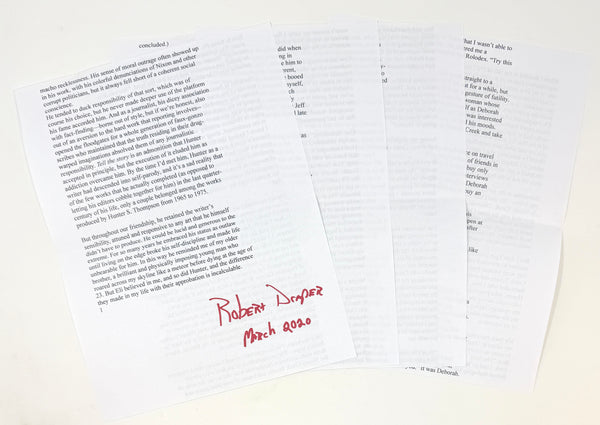 concluded.)
macho recklessness. His sense of moral outrage often showed up
in his work, with his colorful denunciations of Nixon and other
corrupt politicians, but it always fell short of a coherent social
conscience.
He tended to duck responsibility of that sort, which was of
course his choice, but he never made deeper use of the platform
his fame accorded him. And as a journalist, his dicey association
with fact-finding—borne out of style, but if we're honest, also
out of an aversion to the hard work that reporting involves--
opened the floodgates for a whole generation of faux-gonzo
scribes who maintained that the truth residing in their drug-
warped imaginations absolved them of any journalistic
responsibility. Tell the story is an admonition that Hunter
accepted in principle, but the execution of it eluded him as
addiction overcame him. By the time I'd met him, Hunter as a
writer had descended into self-parody, and it's a sad reality that
of the few works that he actually completed (as opposed to
letting his editors cobble together for him) in the last quarter-
century of his life, only a couple belonged among the works
produced by Hunter S. Thompson from 1965 to 1975.
But throughout our friendship, he retained the writer's
sensibility, attuned and responsive to any art that he himself
didn't have to produce. He could be lucid and generous to the
extreme. For so many years he embraced his status as outlaw
until living on the edge broke his self-discipline and made life
unbearable for him. In this way he reminded me of my older
brother, a brilliant and physically imposing young man who
roared across my skyline like a meteor before dying at the age of
23. But Eli believed in me, and so did Hunter, and the difference
they made in my life with their approbation is incalculable.
1
Robert Draper
March 2020
did when
ing in
him to
erent,
booed
myself,
ch
Jeff
I late
as
that I wasn't able to
ered me a
Rolodex. "Try this
straight to a
at for a while, but
gesture of futility.
woman whose
lf as Deborah
was interested
d his moods.
Creek and take
ne on travel
of friends in
buy only
terviews
Deborah
my an
pen at
after
like
It was Deborah.